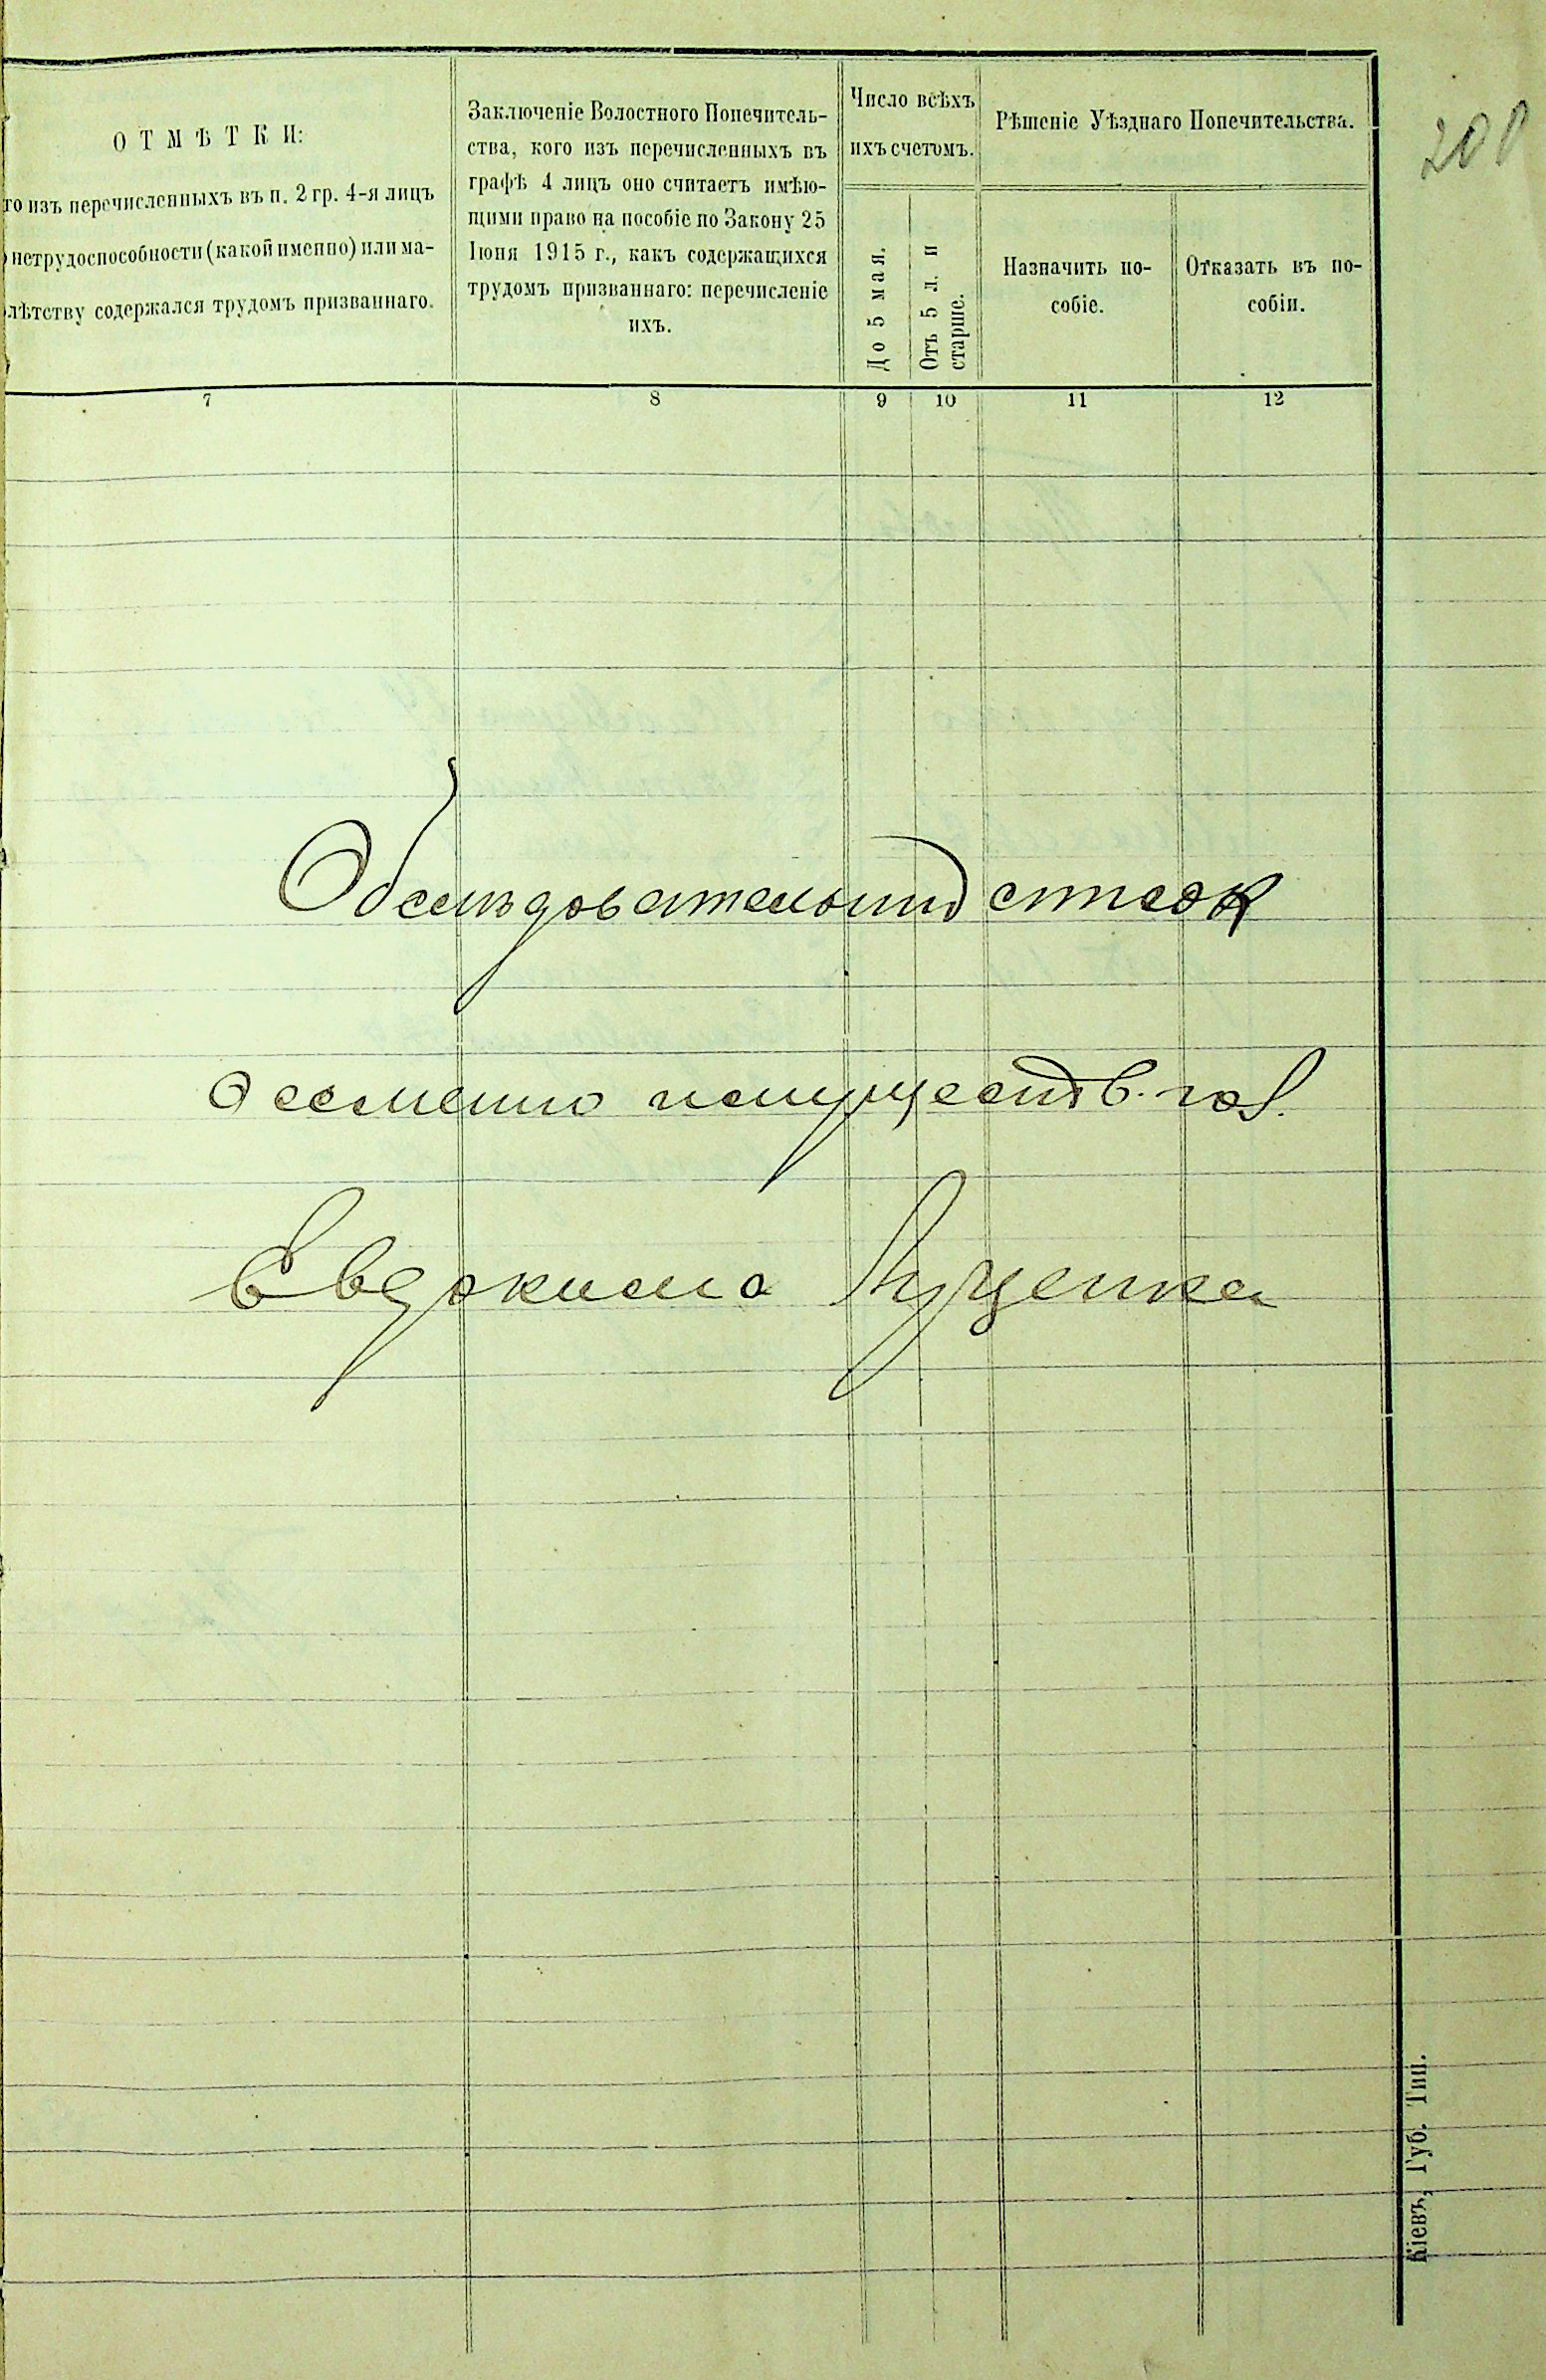 208
ОТМѢТКИ:
то изъ перечисленныхъ въ п. 2 гр. 4-я лицъ
нетрудоспособности (какой именно) или ма-
лѣтству содержался трудомъ призваннаго.
Заключеніе Волостного Попечитель-
ства, кого изъ перечисленныхъ въ
графѣ 4 лицъ оно считаетъ имѣю-
щими право на пособіе по Закону 25
Іюня 1915 г., какъ содержащихся
трудомъ призваннаго: перечисленіе
ихъ.
Число всѣхъ
ихъ счетомъ.
До 5 мая.
Отъ 5 л. и
старше.
Рѣшеніе Уѣзднаго Попечительства.
Назначить по-
собіе.
Отказать въ по-
собіи.
7 8 9 10 11 12
Обслѣдовательный список
о семейно имуществ. пол.
Евдокима Луценка
Кіевъ, Губ. Тип.